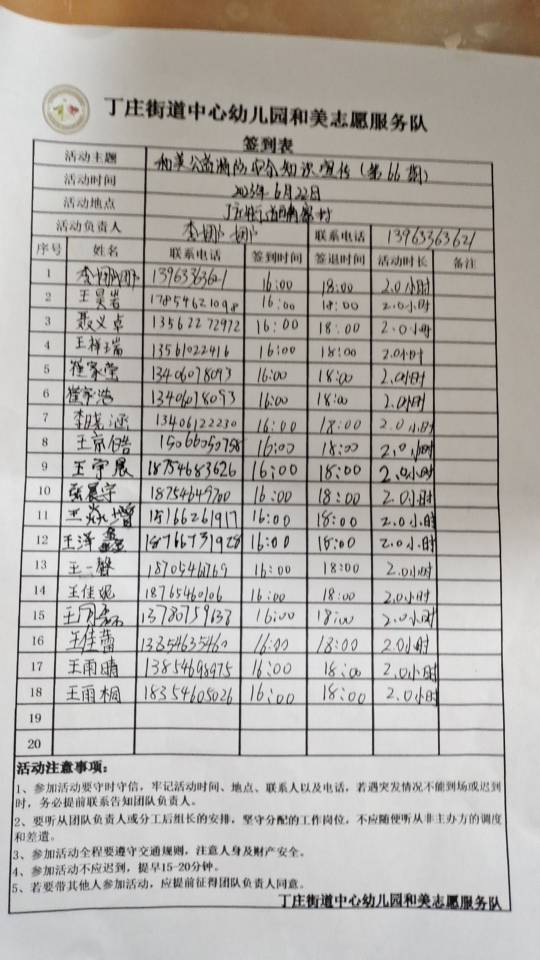 丁庄街道中心幼儿园和美志愿服务队
签到表
活动主题 和美公益消防安全知识宣传(第66期)
活动时间 2023年6月22日
活动地点 丁庄街道
活动负责人 李娜娜 联系电话 13963363621
序号 姓名 联系电话 签到时间 签退时间 活动时长 备注
1 李娜娜 13963363621 16:00 18:00 2.0小时
2 王昊岩 17854621098 16:00 18:00 2.0小时
3 聂义卓 13562272972 16:00 18:00 2.0小时
4 王梓瑞 13561022416 16:00 18:00 2.0小时
5 崔家莹 13406078093 16:00 18:00 2.0小时
6 崔家浩 13406078093 16:00 18:00 2.0小时
7 李晓涵 13406122230 16:00 18:00 2.0小时
8 王京皓 15066050758 16:00 18:00 2.0小时
9 王宇晨 18754683626 16:00 18:00 2.0小时
10 张晨宇 18754649700 16:00 18:00 2.0小时
11 16:00 18:00 2.0小时
12 王洋鑫 18766731928 16:00 18:00 2.0小时
13 王一馨 16:00 18:00 2.0小时
14 王佳妮 18765460106 16:00 18:00 2.0小时
15 13780759638 16:00 18:00 2.0小时
16 王佳蕾 13854635460 16:00 18:00 2.0小时
17 王雨晴 13854698975 16:00 18:00 2.0小时
18 王雨桐 18354605026 16:00 18:00 2.0小时
19
20
活动注意事项:
1、参加活动要守时守信,牢记活动时间、地点、联系人以及电话,若遇突发情况不能到场或迟到
时,务必提前联系告知团队负责人。
2、要听从团队负责人或分工后组长的安排,坚守分配的工作岗位,不应随便听从非主办方的调度
和差遣。
3、参加活动全程要遵守交通规则,注意人身及财产安全。
4、参加活动不应迟到,提早15-20分钟。
5、若要带其他人参加活动,应提前征得团队负责人同意。
丁庄街道中心幼儿园和美志愿服务队